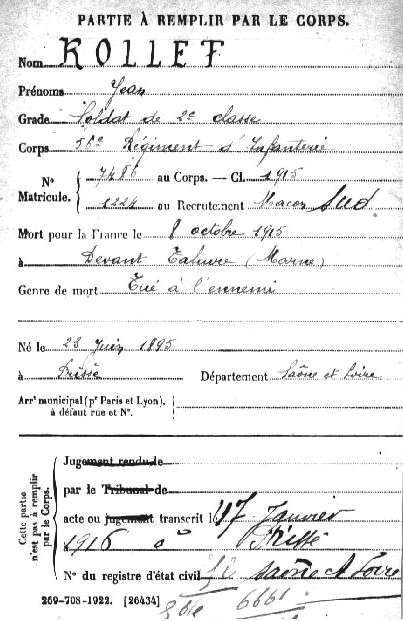 PARTIE À REMPLIR PAR LE CORPS.
Nom ROLLET
Prénoms Jean
Grade Soldat de 2e classe
Corps 56e Régiment d'Infanterie
No 7486 au Corps. — Cl. 1915
Matricule. 1224 au Recrutement Macon Sud
Mort pour la France le 8 octobre 1915
à Devant Tahure (Marne)
Genre de mort Tué à l'ennemi
Né le 23 Juin 1895
à Prissé Département Saône et Loire
Arr' municipal (pr Paris et Lyon),
à défaut rue et No.
Cette partie
n'est pas à remplir
par le Corps.
Jugement rendu le
par le Tribunal de
acte ou jugement transcrit le 17 Janvier
1916 à Prissé
No du registre d'état civil Saône et Loire
269-708-1922. [26434]